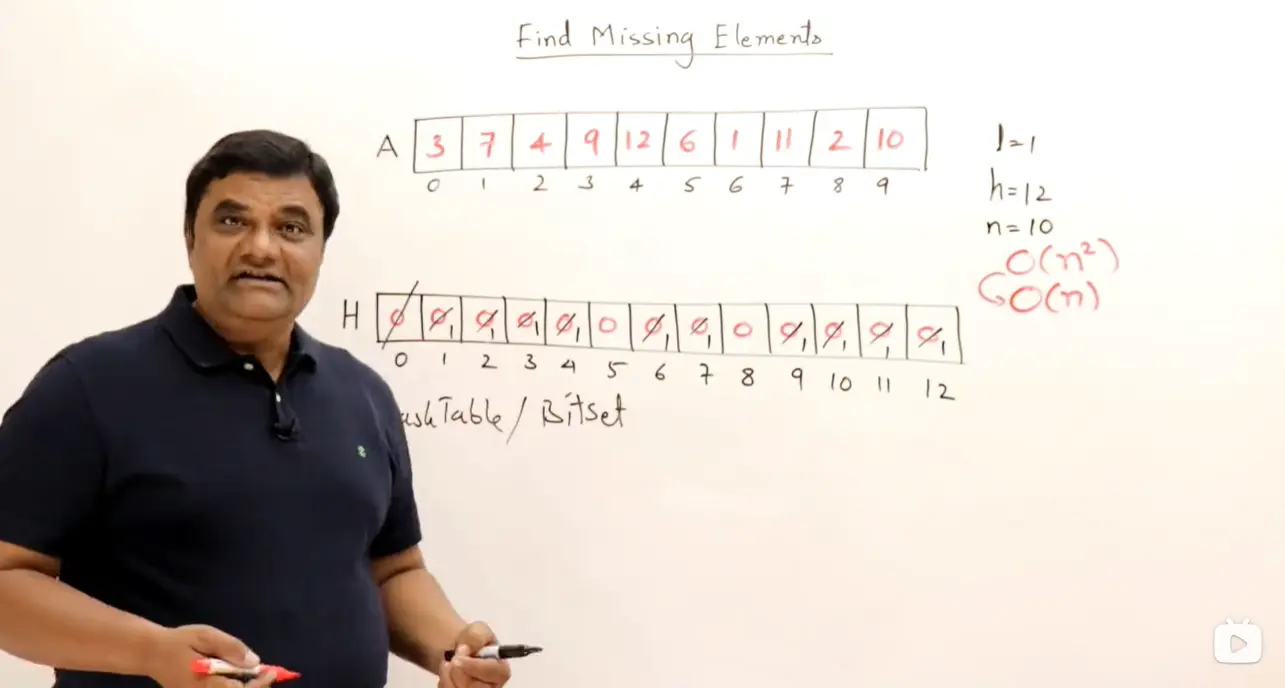 Find Missing Elements
A 3 7 4 9 12 6 1 11 2 10
0 1 2 3 4 5 6 7 8 9
l=1
h=12
n=10
O(n²)
O(n)
H 0 0 1 0 1 0 1 0 1 0 0 1 0 1 0 0 1 0 1 0 1 0 1
0 1 2 3 4 5 6 7 8 9 10 11 12
Bitset